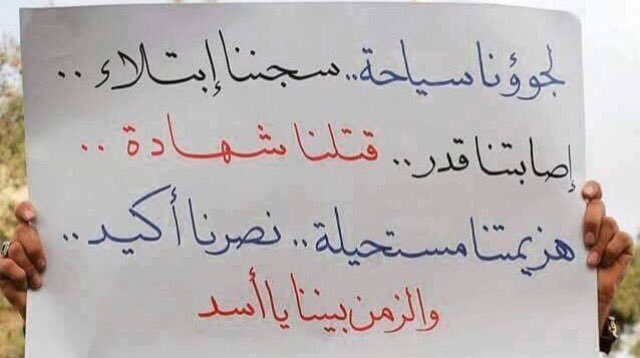 لجوؤنا سياحة.. سجننا إبتلاء ..
إصابتنا قدر.. قتلنا شهادة ..
هزيمتنا مستحيلة.. نصرنا أكيد ..
والزمن بيننا يا أسد